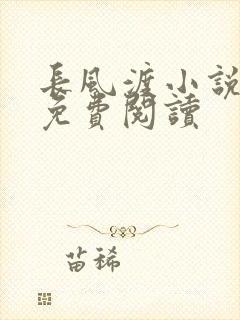 長風渡小說
免費閱讀
苗稀